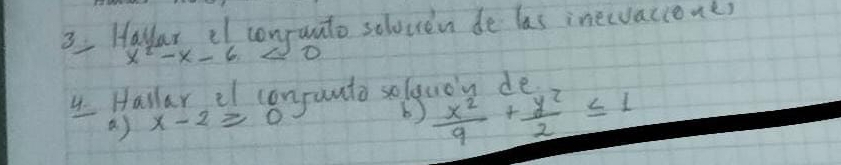 3- Hallar el conjunto solución de las inecuaciones
x² - x - 6 < 0
4- Hallar el conjunto solución de
a) x - 2 ≥ 0 b) x²/9 + y²/2 ≤ 1